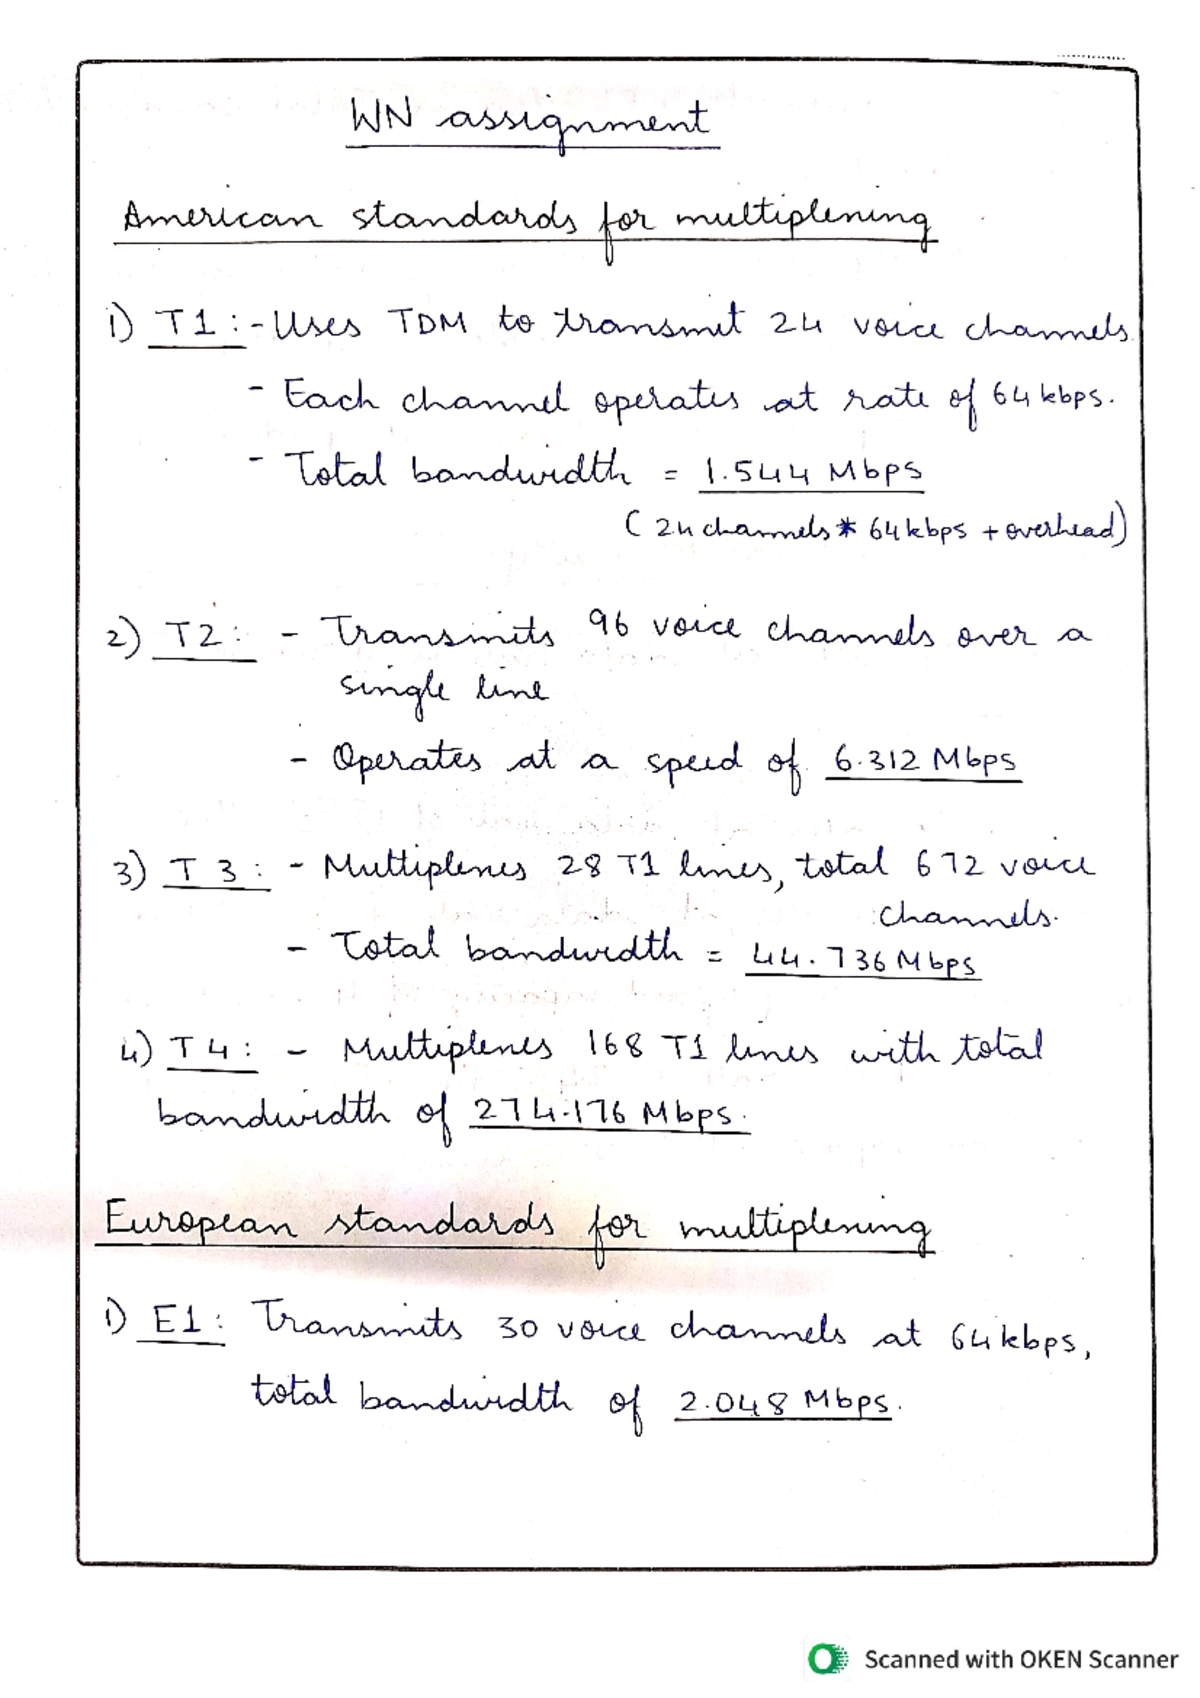 WN assignment
American standards for multiplexing
1) T1 :- Uses TDM to transmit 24 voice channels
- Each channel operates at rate of 64 kbps.
- Total bandwidth = 1.544 Mbps
( 24 channels * 64 kbps + overhead)
2) T2 : - Transmits 96 voice channels over a
single line
- Operates at a speed of 6.312 Mbps
3) T3 : - Multiplexes 28 T1 lines, total 672 voice
channels.
- Total bandwidth = 44.736 Mbps
4) T4 : - Multiplexes 168 T1 lines with total
bandwidth of 274.176 Mbps.
European standards for multiplexing
1) E1 : Transmits 30 voice channels at 64 kbps,
total bandwidth of 2.048 Mbps.
Scanned with OKEN Scanner